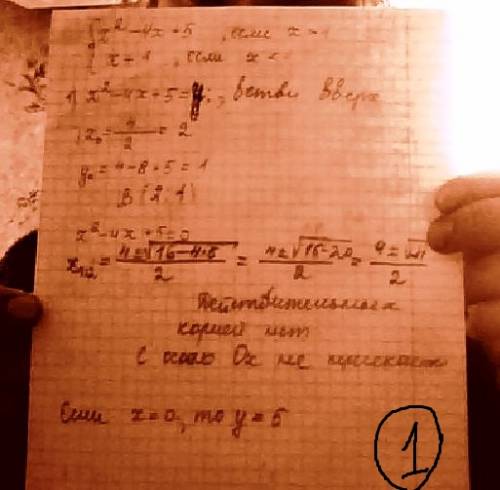 { x² - 4x + 5 , если x ≥ 1
{ x + 1 , если x <
1) x² - 4x + 5 = y ; , ветви вверх
x₀ = 4/2 = 2
y₀ = 4 - 8 + 5 = 1
B (2; 1)
x² - 4x + 5 = 0
x₁,₂ = (4 ± √(16 - 4·5))/2 = (4 ± √(16 - 20))/2 = (4 ± √-4)/2
Действительных
корней нет
С осью Ox не пересекает
Если x = 0, то y = 5
1